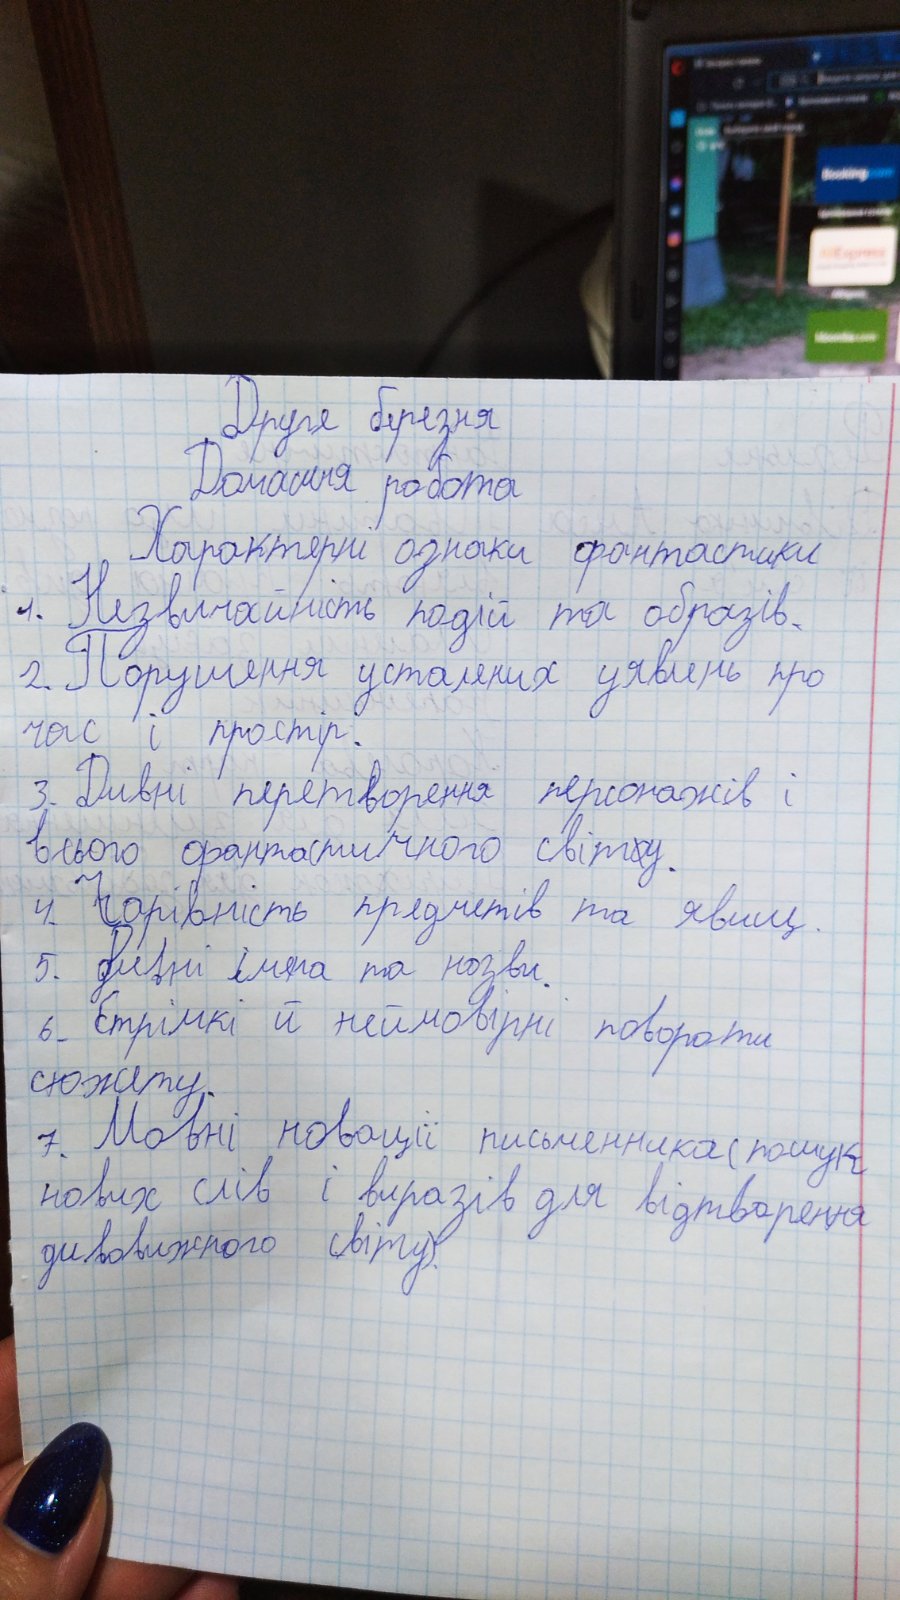 Booking.com
AliExpress
Друге березня
Домашня робота
Характерні ознаки фантастики
1. Незвичайність подій та образів.
2. Порушення усталених уявлень про
час і простір.
3. Дивні перетворення персонажів і
всього фантастичного світу.
4. Чарівність предметів та явищ.
5. Дивні імена та назви.
6. Стрімкі й неймовірні повороти
сюжету.
7. Мовні новації письменника (пошук
нових слів і виразів для відтворення
дивовижного світу).